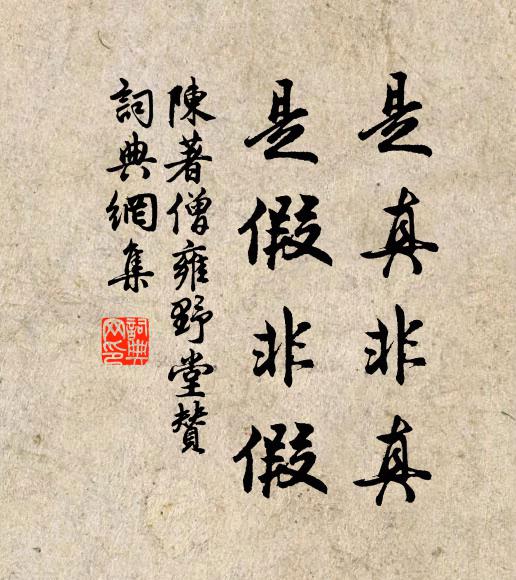 是真非真
是假非假
陳著僧雍野堂贊
詞典網集
詞典網印